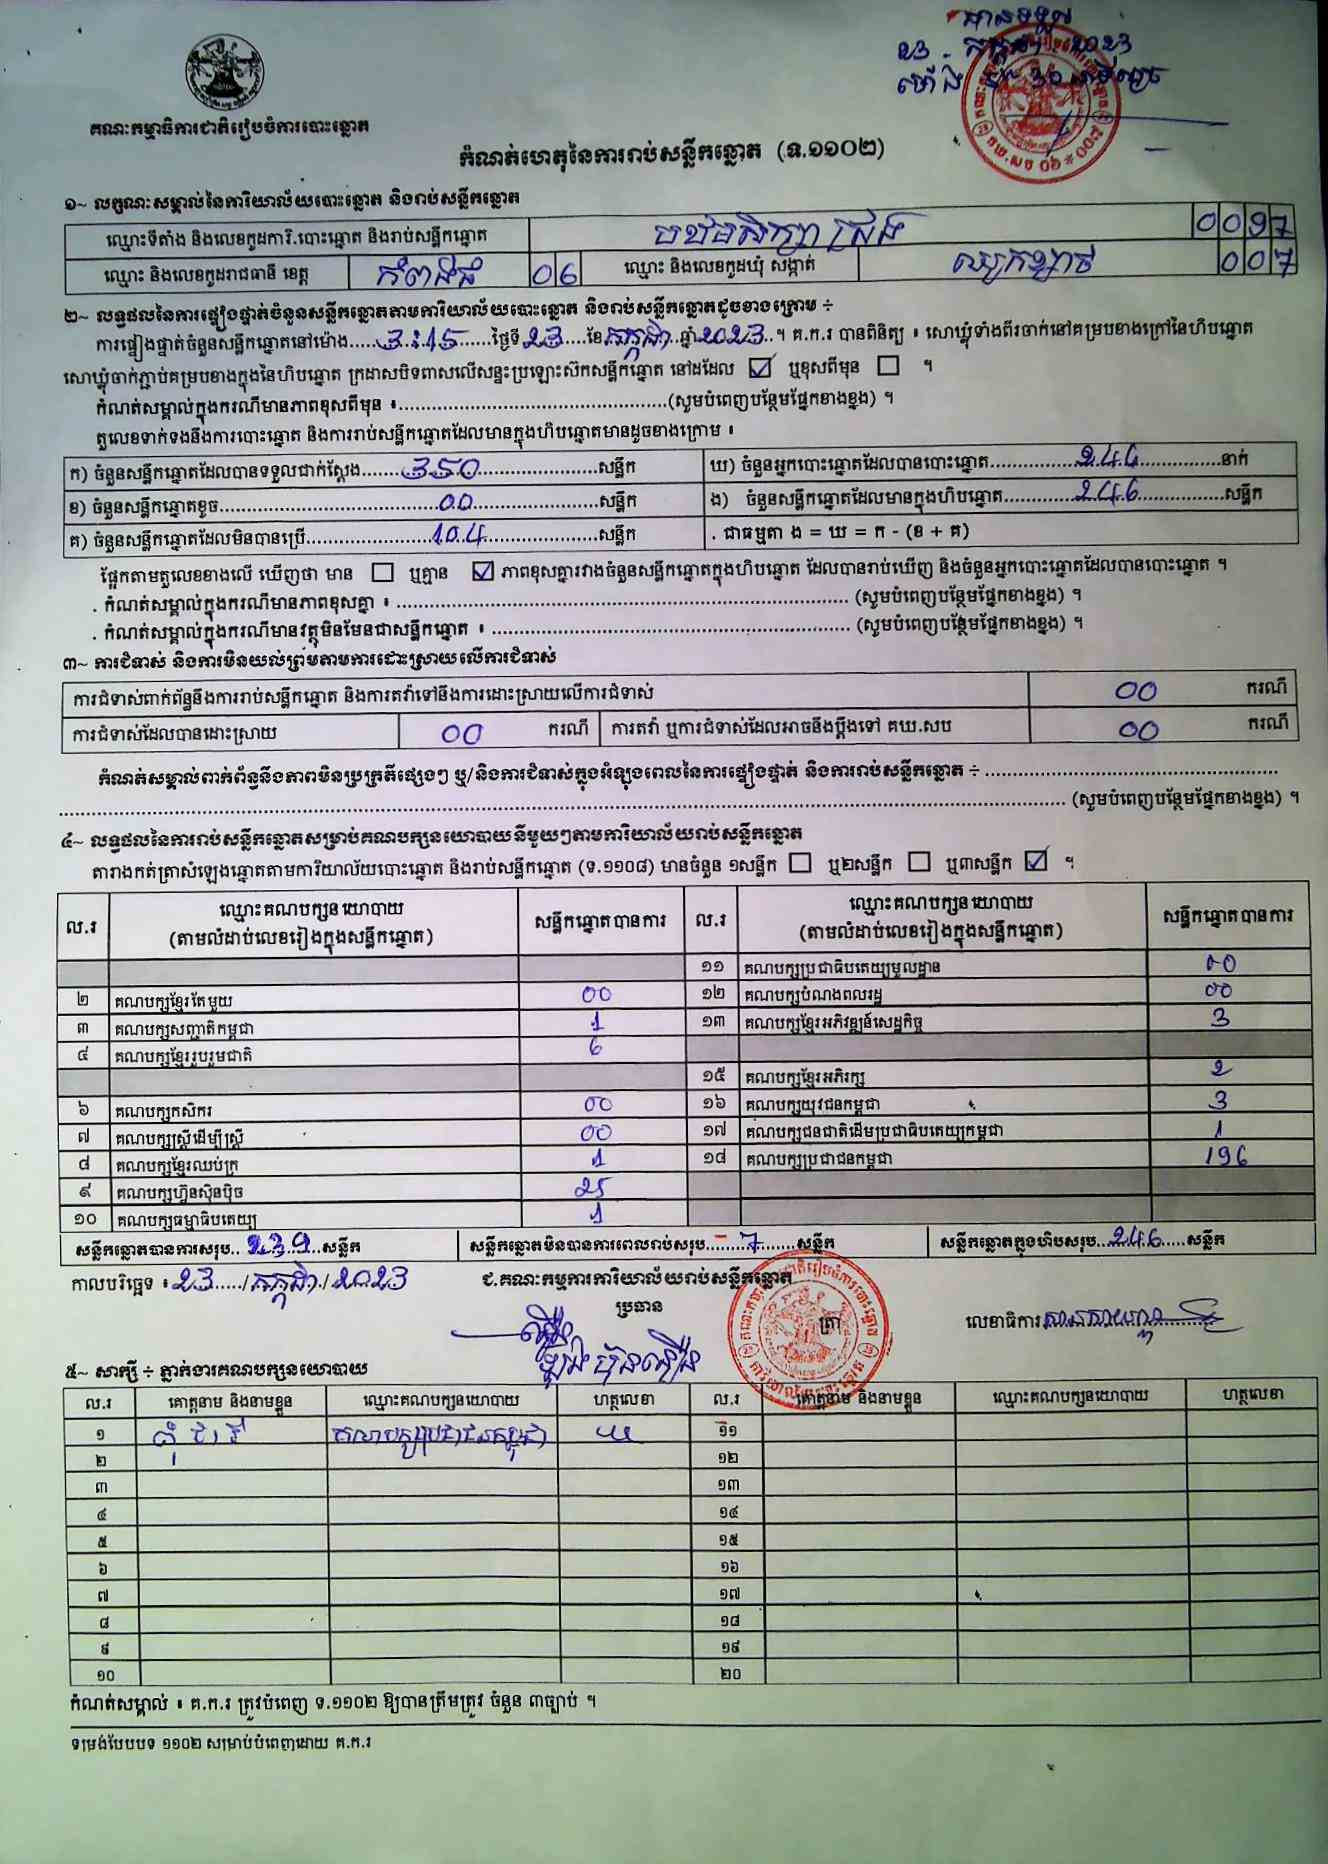 បានទទួល
23 កក្កដា 2023
គណៈកម្មាធិការជាតិរៀបចំការបោះឆ្នោត
កំណត់ហេតុនៃការរាប់សន្លឹកឆ្នោត (ទ.១១០២)
១~ លក្ខណៈសម្គាល់នៃការិយាល័យបោះឆ្នោត និងរាប់សន្លឹកឆ្នោត
ឈ្មោះទីតាំង និងលេខកូដការិ.បោះឆ្នោត និងរាប់សន្លឹកឆ្នោត បឋមសិក្សា ជ្រែង 0097
ឈ្មោះ និងលេខកូដរាជធានី ខេត្ត កំពង់ធំ 06 ឈ្មោះ និងលេខកូដឃុំ សង្កាត់ ឈូកខ្សាច់ 007
២~ លទ្ធផលនៃការផ្ទៀងផ្ទាត់ចំនួនសន្លឹកឆ្នោតតាមការិយាល័យបោះឆ្នោត និងរាប់សន្លឹកឆ្នោតដូចខាងក្រោម ÷
ការផ្ទៀងផ្ទាត់ចំនួនសន្លឹកឆ្នោតនៅម៉ោង 3:15 ថ្ងៃទី 23 ខែ កក្កដា ឆ្នាំ 2023 ។ គ.ក.រ បានពិនិត្យ ៖ សោឃ្លុំទាំងពីរចាក់នៅគម្របខាងក្រៅនៃហិបឆ្នោត
សោឃ្លុំចាក់ភ្ជាប់គម្របខាងក្នុងនៃហិបឆ្នោត ក្រដាសបិទពាសលើសន្ទះប្រឡោះស៊កសន្លឹកឆ្នោត នៅដដែល ☑ ឬខុសពីមុន ☐ ។
កំណត់សម្គាល់ក្នុងករណីមានភាពខុសពីមុន ៖ (សូមបំពេញបន្ថែមផ្នែកខាងខ្នង) ។
តួលេខទាក់ទងនឹងការបោះឆ្នោត និងការរាប់សន្លឹកឆ្នោតដែលមានក្នុងហិបឆ្នោតមានដូចខាងក្រោម ៖
ក) ចំនួនសន្លឹកឆ្នោតដែលបានទទួលជាក់ស្តែង 350 សន្លឹក ឃ) ចំនួនអ្នកបោះឆ្នោតដែលបានបោះឆ្នោត 246 នាក់
ខ) ចំនួនសន្លឹកឆ្នោតខូច 00 សន្លឹក ង) ចំនួនសន្លឹកឆ្នោតដែលមានក្នុងហិបឆ្នោត 246 សន្លឹក
គ) ចំនួនសន្លឹកឆ្នោតដែលមិនបានប្រើ 104 សន្លឹក . ជាធម្មតា ង = ឃ = ក - (ខ + គ)
ផ្អែកតាមតួលេខខាងលើ ឃើញថា មាន ☐ ឬគ្មាន ☑ ភាពខុសគ្នារវាងចំនួនសន្លឹកឆ្នោតក្នុងហិបឆ្នោត ដែលបានរាប់ឃើញ និងចំនួនអ្នកបោះឆ្នោតដែលបានបោះឆ្នោត ។
. កំណត់សម្គាល់ក្នុងករណីមានភាពខុសគ្នា ៖ (សូមបំពេញបន្ថែមផ្នែកខាងខ្នង) ។
. កំណត់សម្គាល់ក្នុងករណីមានវត្ថុមិនមែនជាសន្លឹកឆ្នោត ៖ (សូមបំពេញបន្ថែមផ្នែកខាងខ្នង) ។
៣~ ការជំទាស់ និងការមិនយល់ព្រមតាមការដោះស្រាយលើការជំទាស់
ការជំទាស់ពាក់ព័ន្ធនឹងការរាប់សន្លឹកឆ្នោត និងការតវ៉ាទៅនឹងការដោះស្រាយលើការជំទាស់ 00 ករណី
ការជំទាស់ដែលបានដោះស្រាយ 00 ករណី ការតវ៉ា ឬការជំទាស់ដែលអាចនឹងប្តឹងទៅ គឃ.សប 00 ករណី
កំណត់សម្គាល់ពាក់ព័ន្ធនឹងភាពមិនប្រក្រតីផ្សេងៗ ឬ/និងការជំទាស់ក្នុងអំឡុងពេលនៃការផ្ទៀងផ្ទាត់ និងការរាប់សន្លឹកឆ្នោត ÷
(សូមបំពេញបន្ថែមផ្នែកខាងខ្នង) ។
៤~ លទ្ធផលនៃការរាប់សន្លឹកឆ្នោតសម្រាប់គណបក្សនយោបាយនីមួយៗតាមការិយាល័យរាប់សន្លឹកឆ្នោត
តារាងកត់ត្រាសំឡេងឆ្នោតតាមការិយាល័យបោះឆ្នោត និងរាប់សន្លឹកឆ្នោត (ទ.១១០៨) មានចំនួន ១សន្លឹក ☐ ឬ២សន្លឹក ☐ ឬ៣សន្លឹក ☑ ។
ល.រ ឈ្មោះគណបក្សនយោបាយ (តាមលំដាប់លេខរៀងក្នុងសន្លឹកឆ្នោត) សន្លឹកឆ្នោតបានការ ល.រ ឈ្មោះគណបក្សនយោបាយ (តាមលំដាប់លេខរៀងក្នុងសន្លឹកឆ្នោត) សន្លឹកឆ្នោតបានការ
១១ គណបក្សប្រជាធិបតេយ្យមូលដ្ឋាន 00
២ គណបក្សខ្មែរតែមួយ 00 ១២ គណបក្សបំណងពលរដ្ឋ 00
៣ គណបក្សសញ្ជាតិកម្ពុជា 1 ១៣ គណបក្សខ្មែរអភិវឌ្ឍន៍សេដ្ឋកិច្ច 3
៤ គណបក្សខ្មែររួបរួមជាតិ 6
១៥ គណបក្សខ្មែរអភិរក្ស 2
៦ គណបក្សកសិករ 00 ១៦ គណបក្សយុវជនកម្ពុជា 3
៧ គណបក្សស្ត្រីដើម្បីស្ត្រី 00 ១៧ គណបក្សជនជាតិដើមប្រជាធិបតេយ្យកម្ពុជា 1
៨ គណបក្សខ្មែរឈប់ក្រ 1 ១៨ គណបក្សប្រជាជនកម្ពុជា 196
៩ គណបក្សហ៊្វុនស៊ិនប៉ិច 25
១០ គណបក្សធម្មាធិបតេយ្យ 1
សន្លឹកឆ្នោតបានការសរុប 239 សន្លឹក សន្លឹកឆ្នោតមិនបានការពេលរាប់សរុប 7 សន្លឹក សន្លឹកឆ្នោតក្នុងហិបសរុប 246 សន្លឹក
កាលបរិច្ឆេទ ៖ 23 / កក្កដា / 2023 ជ.គណៈកម្មការការិយាល័យរាប់សន្លឹកឆ្នោត
ប្រធាន ត្រា លេខាធិការ
៥~ សាក្សី ÷ ភ្នាក់ងារគណបក្សនយោបាយ
ល.រ គោត្តនាម និងនាមខ្លួន ឈ្មោះគណបក្សនយោបាយ ហត្ថលេខា ល.រ គោត្តនាម និងនាមខ្លួន ឈ្មោះគណបក្សនយោបាយ ហត្ថលេខា
១ គណបក្សប្រជាជនកម្ពុជា ១១
២ ១២
៣ ១៣
៤ ១៤
៥ ១៥
៦ ១៦
៧ ១៧
៨ ១៨
៩ ១៩
១០ ២០
កំណត់សម្គាល់ ៖ គ.ក.រ ត្រូវបំពេញ ទ.១១០២ ឱ្យបានត្រឹមត្រូវ ចំនួន ៣ច្បាប់ ។
ទម្រង់បែបបទ ១១០២ សម្រាប់បំពេញដោយ គ.ក.រ